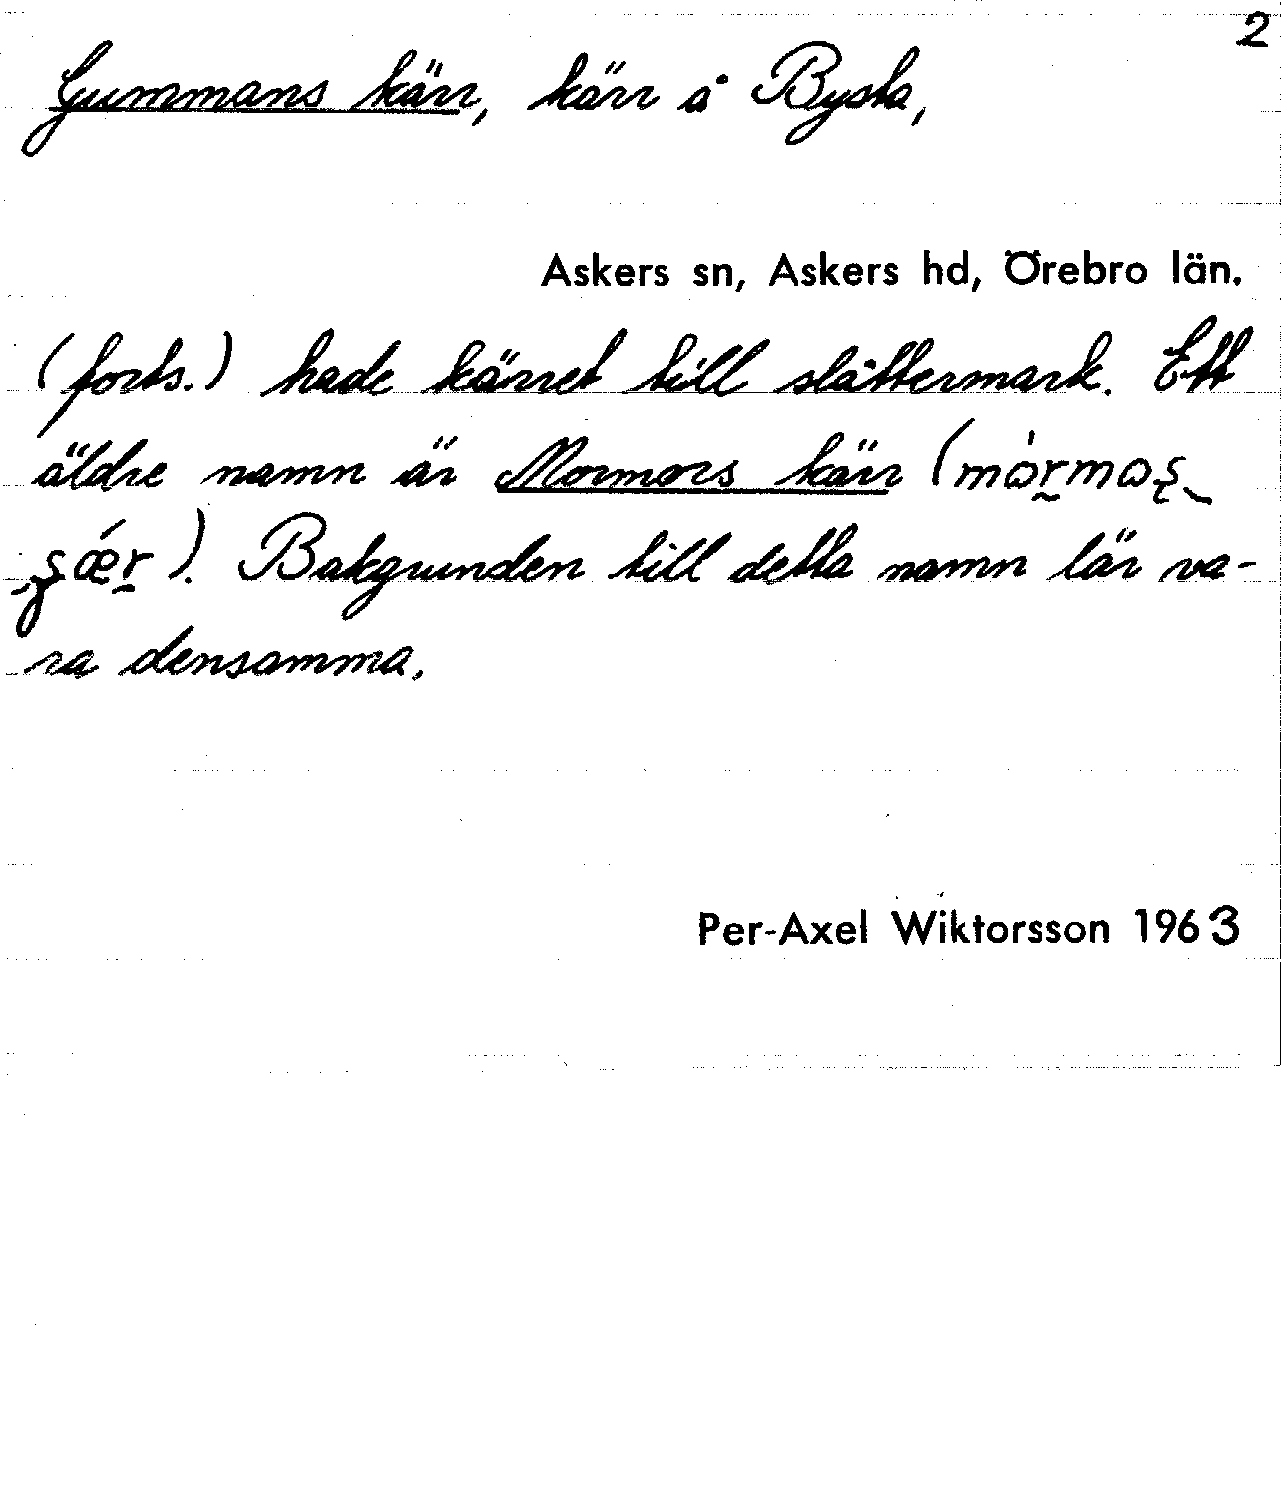 2
Gummans kärr, kärr å Bysta,
Askers sn, Askers hd, Örebro län.
(forts.) hade kärret till slåttermark. Ett
äldre namn är Mormors kärr (
). Bakgrunden till detta namn lär va-
ra densamma.
Per-Axel Wiktorsson 1963